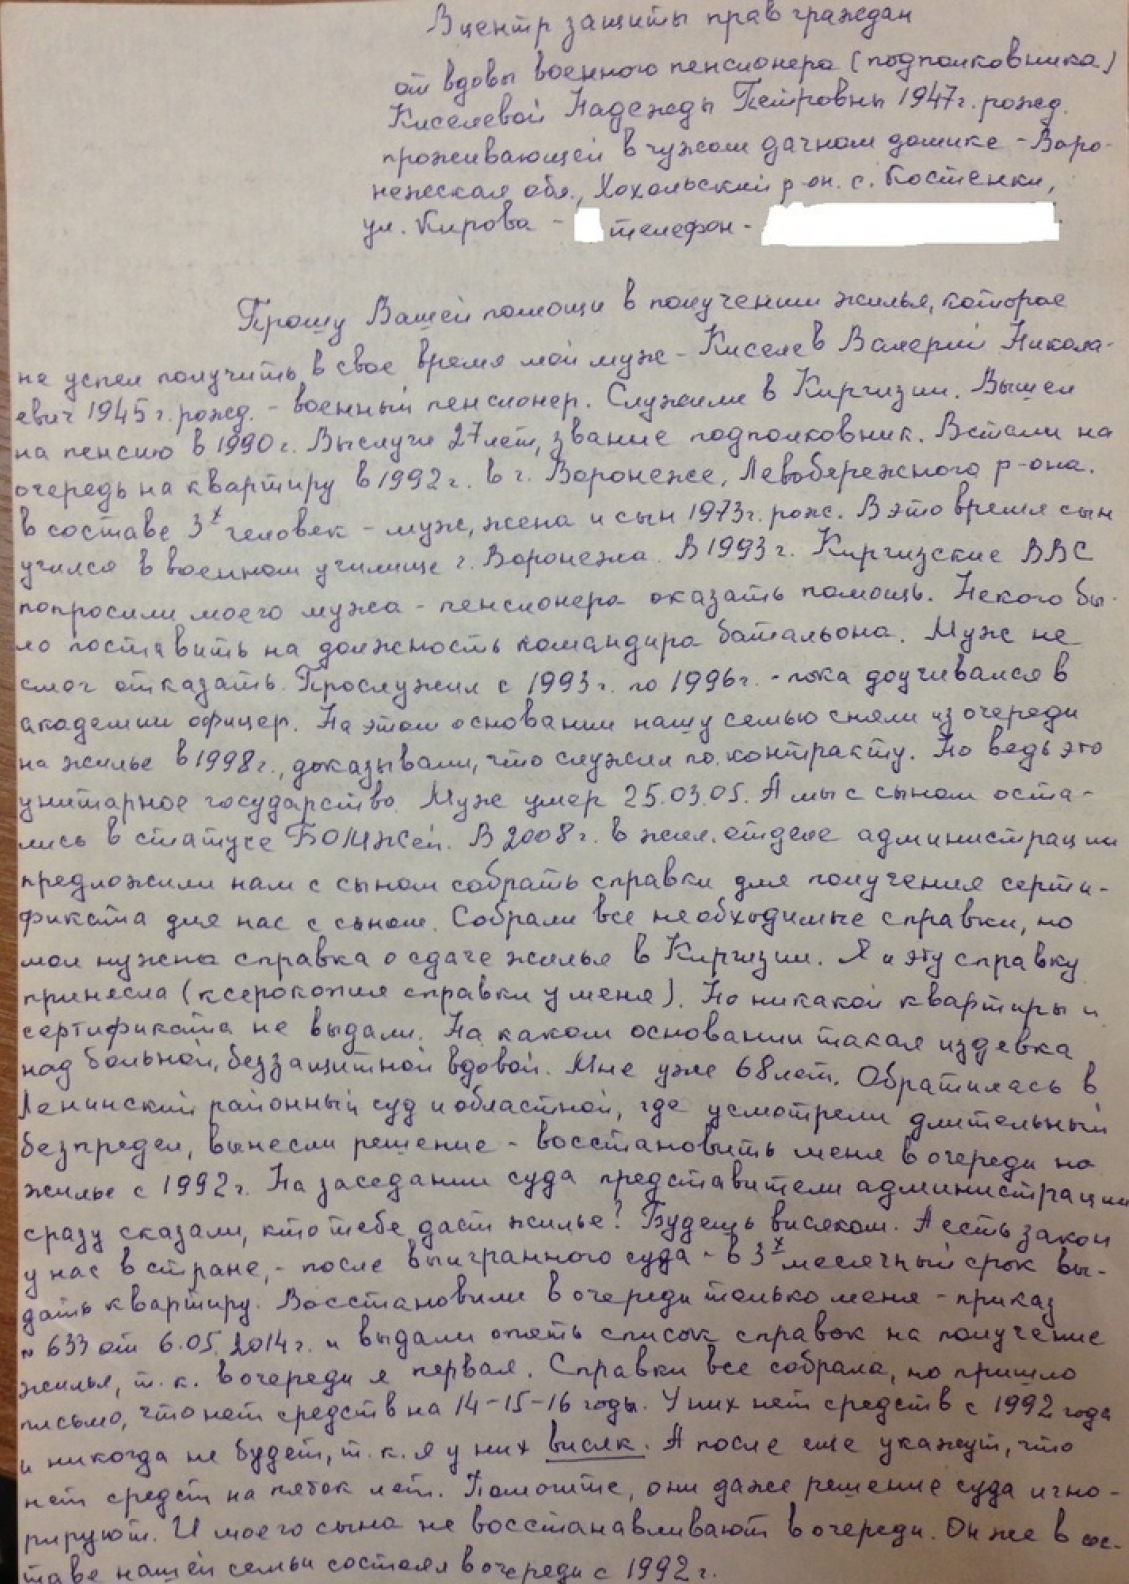 В центр защиты прав граждан
от вдовы военного пенсионера (подполковника)
Киселевой Надежды Петровны 1947г. рожд.
проживающей в чужом дачном домике - Воро-
нежская обл., Хохольский р-он. с. Костенки,
ул. Кирова - телефон -
Прошу Вашей помощи в получении жилья, которое
не успел получить в свое время мой муж - Киселев Валерий Никола-
евич 1945г. рожд. - военный пенсионер. Служили в Киргизии. Вышел
на пенсию в 1990г. Выслуги 27 лет, звание подполковник. Встали на
очередь на квартиру в 1992г. в г. Воронеже, Левобережного р-она.
в составе 3х человек - муж, жена и сын 1973г. рож. В это время сын
учился в военном училище г. Воронежа. В 1993г. Киргизские ВВС
попросили моего мужа - пенсионера оказать помощь. Некого бы-
ло поставить на должность командира батальона. Муж не
смог отказать. Прослужил с 1993г. по 1996г. - пока доучивался в
академии офицер. На этом основании нашу семью сняли из очереди
на жилье в 1998г., доказывали, что служил по контракту. Но ведь это
унитарное государство. Муж умер 25.03.05. А мы с сыном оста-
лись в статусе БОМЖей. В 2008г. в жил. отделе администрации
предложили нам с сыном собрать справки для получения серти-
фиката для нас с сыном. Собрали все необходимые справки, но
мол нужна справка о сдаче жилья в Киргизии. Я и эту справку
принесла (ксерокопия справки у меня). Но никакой квартиры и
сертификата не выдали. На каком основании такая издевка
над больной, беззащитной вдовой. Мне уже 68 лет. Обратилась в
Ленинский районный суд и областной, где усмотрели длительный
безпредел, вынесли решение - восстановить меня в очереди на
жилье с 1992г. На заседании суда представители администрации
сразу сказали, кто тебе даст жилье? Будешь висяком. А есть закон
у нас в стране, - после выигранного суда - в 3х месячный срок вы-
дать квартиру. Восстановили в очереди только меня - приказ
№ 633 от 6.05.2014г. и выдали опять список справок на получение
жилья, т.к. в очереди я первая. Справки все собрала, но пришло
письмо, что нет средств на 14-15-16 годы. У них нет средств с 1992 года
и никогда не будет, т.к. я у них висяк. А после еще укажут, что
нет средст на пяток лет. Помогите, они даже решение суда игно-
рируют. И моего сына не восстанавливают в очереди. Он же в сос-
таве нашей семьи состоял в очереди с 1992г.